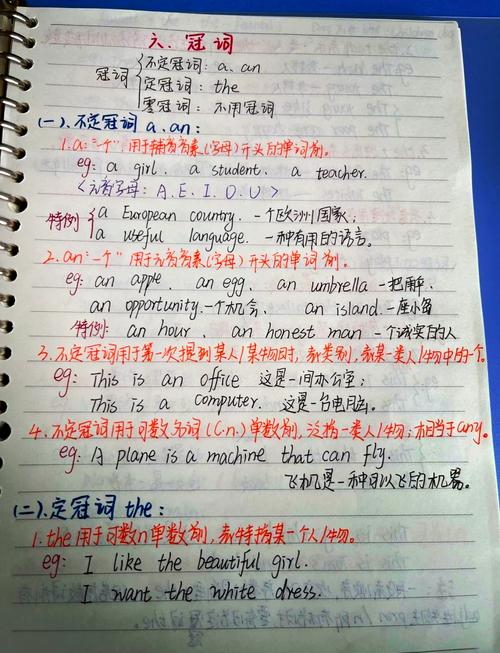 六、冠词
冠词 { 不定冠词: a、an
定冠词: the
零冠词: 不用冠词
(一)、不定冠词 a、an:
1.a:"一个"用于辅音音素(字母)开头的单词前。
eg: a girl、 a student、 a teacher.
<元音字母: A、E、I、O、U>
特例 { a European country. 一个欧洲国家;
a useful language. 一种有用的语言。
2.an:"一个"用于元音音素(字母)开头的单词前。
eg: an apple、 an egg、 an umbrella 一把雨伞、
an opportunity.一个机会、 an island.一座小岛
特例: an hour、 an honest man 一个诚实的人
3.不定冠词用于第一次提到某人/某物时,表类别,表某一类人/物中的一个。
eg: This is an office 这是一间办公室;
This is a computer. 这是一台电脑。
4.不定冠词用于可数名词(C.n.)单数前,泛指一类人/物;相当于any。
eg: A plane is a machine that can fly.
飞机是一种可以飞的机器。
(二)、定冠词 the:
1.the 用于可数n单数前,表特指某一个人/物。
eg: I like the beautiful girl.
I want the white dress.